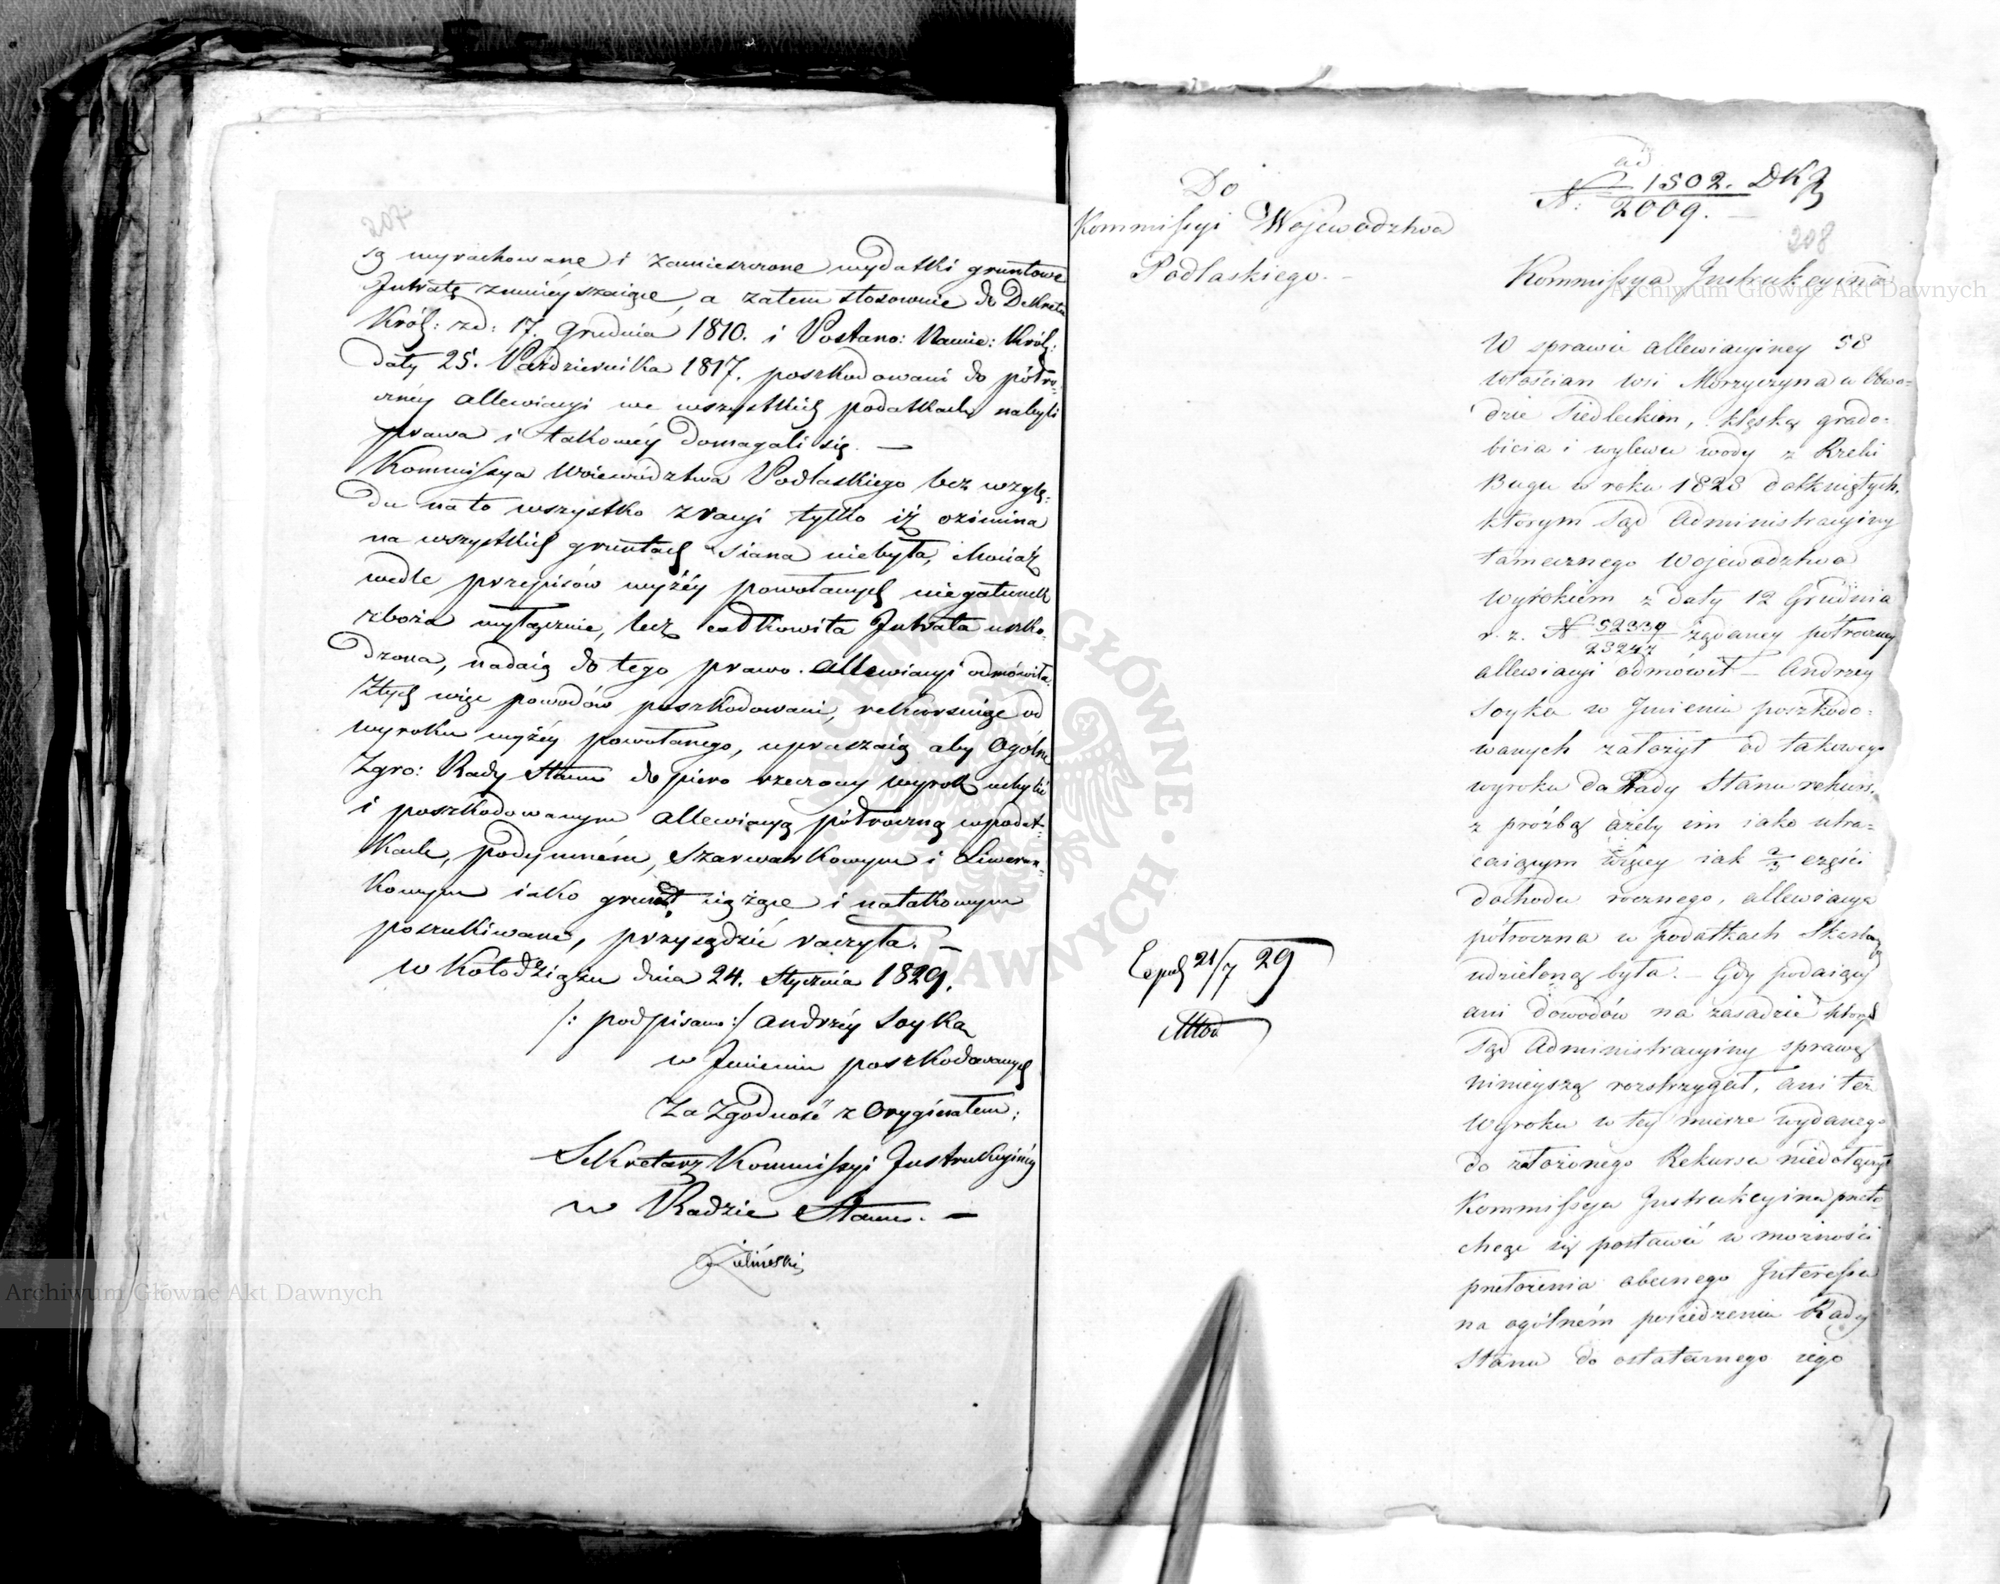 207
są wyrachowane i zamieszczone wydatki gruntowe
Intratę zmnieyszaiące, a zatem stosownie do Dekretu
Król: zd: 17. Grudnia 1810. i Postano: Namie: Król:
daty 25. Października 1817. poszkodowani do półro-
cznéy allewiacyi we wszystkich podatkach nabyli
prawa i takowéy domagali się. —
Kommissya Woiewództwa Podlaskiego bez wzglę-
du na to wszystko z racyi tylko iż ozimina
na wszystkich gruntach siana niebyła, chociaż
wedle przepisów wyżéy powołanych niegatunek
zboża wyłącznie, lecz całkowita Intrata uszko-
dzona, nadaią do tego prawo. allewiacyi odmówiła.
Ztych więc powodów poszkodowani, rekursuiąc od
wyroku wyżéy powołanego, upraszaią aby Ogólne
Zgro: Rady Stanu dopiero rzeczony wyrok uchylić
i poszkodowanym allewiacyą półroczną w podat-
kach, podymném, Szarwarkowym i Liweran-
kowym iako grunt ciążące i na takowym
poszukiwane, przysądzić raczyła. —
w Kołodziążu dnia 24. Stycznia 1829.
/: podpisano :/ Andrzéy Soyka
w Imieniu poszkodowanych
Za Zgodność z Oryginałem:
Sekretarz Kommissyi Instrukcyinéy
w Radzie Stanu. —
Zieliński
Do
Kommissyi Wojewodztwa
Podlaskiego. —
Exped 21/7 29
ad
N: 1502. DKJ
2009.
208
Kommissya Instrukcyina
W sprawie allewiacyiney 58
włościan wsi Morzyczyna w Obwo-
dzie Siedleckim, klęską grado-
bicia i wylewu wody z Rzeki
Bugu w roku 1828 dotkniętych,
ktorym Sąd Administracyiny
tamecznego Wojewodztwa
wyrokiem z daty 12 Grudnia
r. z. N 52339/23247 żądaney półroczney
allewiacyi odmówił — Andrzey
Soyka w Imieniu poszkodo-
wanych założył od takowego
wyroku do Rady Stanu rekurs,
z prośbą ażeby im iako utra-
caiącym więcey iak 2/3 części
dochodu rocznego, allewiacya
półroczna w podatkach Skarbo
udzieloną była. — Gdy podaiący
ani dowodów na zasadzie których
Sąd Administracyiny sprawę
ninieyszą rozstrzygał, ani też
Wyroku w tey mierze wydanego
do złożonego Rekursu niedołączył
Kommissya Instrukcyina przeto
chcąc się postawić w możności
przełożenia obecnego Interessu
na ogólném posiedzeniu Rady
Stanu do ostatecznego iego
Archiwum Główne Akt Dawnych
Archiwum Główne Akt Dawnych
ARCHIWUM GŁÓWNE AKT DAWNYCH